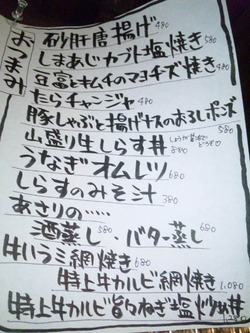 おつまみ
砂肝唐揚げ 480
しまあじカブト塩焼き 580
豆富とキムチのマヨチーズ焼き 480
たらチャンジャ 480
豚しゃぶと揚げナスのおろしポン酢
山盛り生しらす丼 880
しょうが醤油でどうぞ
うなぎオムレツ 680
しらすのみそ汁 380
あさりの‥‥
酒蒸し 680 バター蒸し 680
牛ハラミ網焼き 680
特上牛カルビ網焼き 1,080
特上牛カルビ旨々ねぎ塩炒め丼